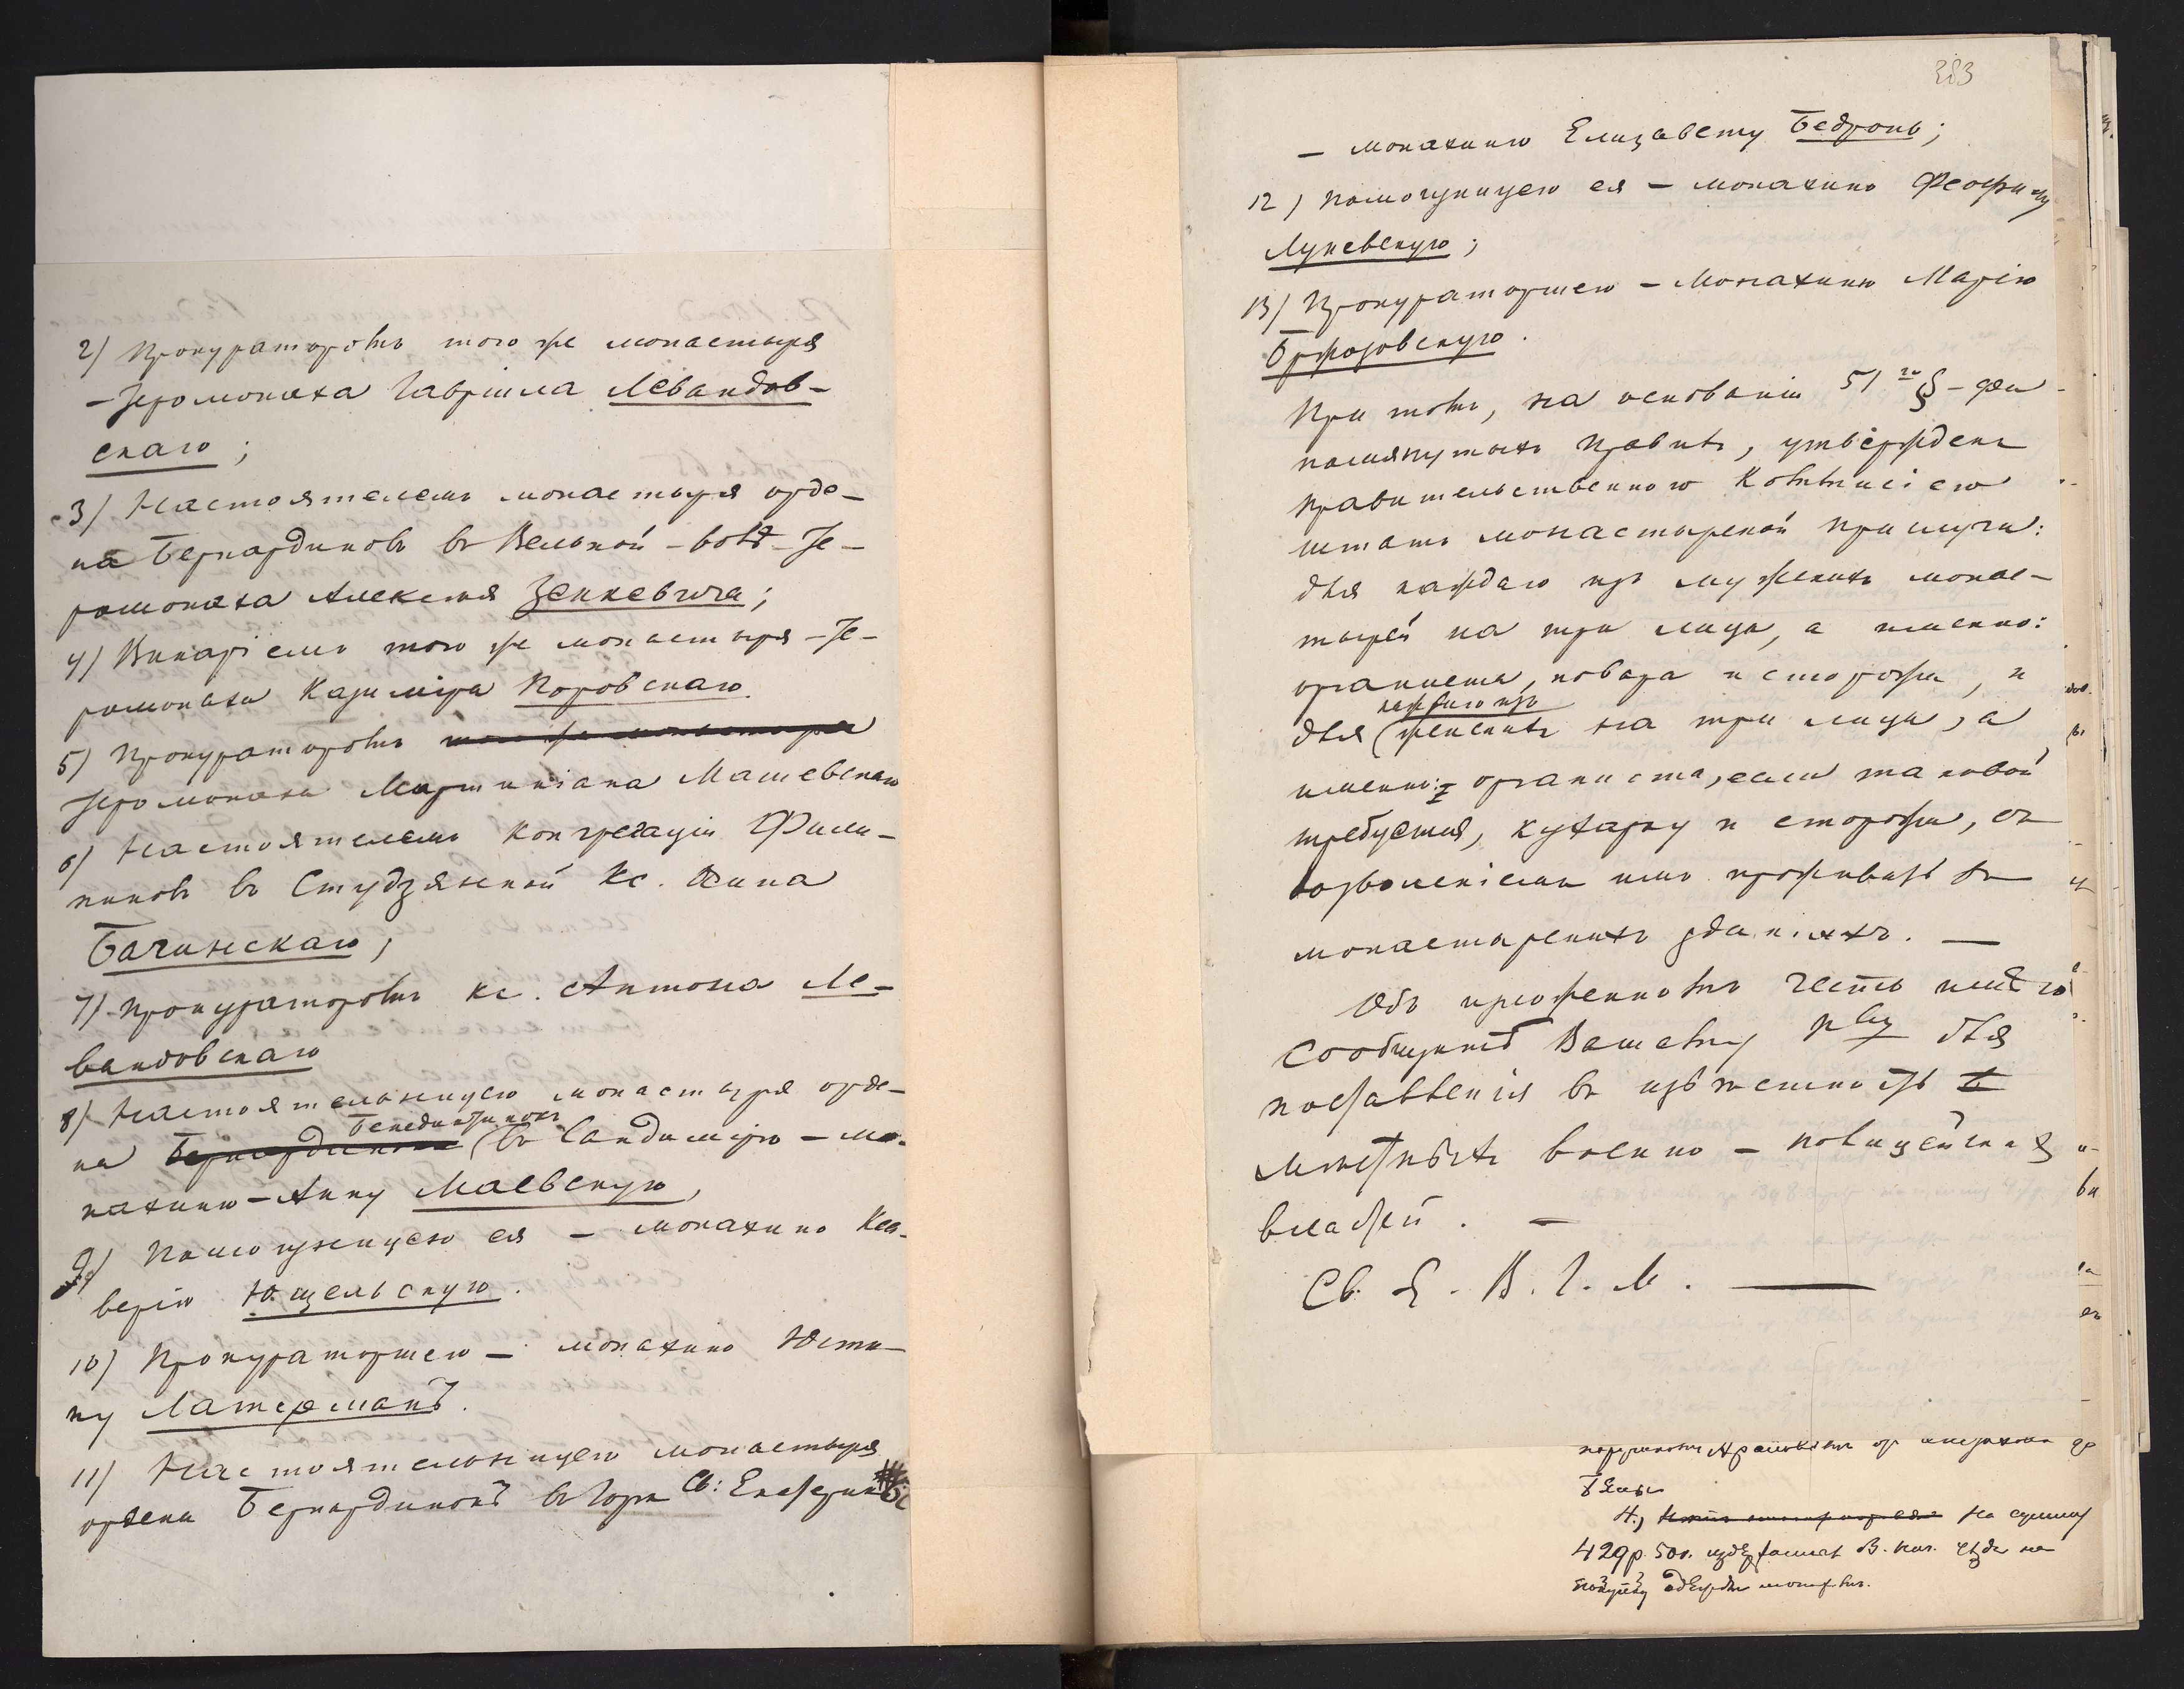 2) Прокураторомъ того же монастыря
– Іеромонаха Гавріила Левандов-
скаго;
3) Настоятелемъ монастыря орде-
на Бернардиновъ въ Велькой-воль – Іе-
ромонаха Алексія Зенкевича;
4) Викаріемъ того же монастыря – Іе-
ромонаха Казиміра Коровскаго
5) Прокураторомъ того же монастыря
Іеромонаха Мартиніана Машевскаго
6) Настоятелемъ Конгрегаціи Фили-
пиновъ въ Студзянской Кс.
Бачинскаго;
7) Прокураторомъ кс. Антона Ле-
вандовскаго
8) Настоятельницею монастыря орде-
на Бернардинокъ Бенедиктинокъ въ Сандомірѣ – мо-
нахиню – Анну Маевскую,
9) Помощницею ея – монахиню Кса-
верію Ющельскую.
10) Прокураторшею – монахиню Юсти-
ну Латерманъ.
11) Настоятельницею монастыря
ордена Бернардинокъ въ Горѣ Св: Екатерины
383
– монахиню Елизавету Бедронь;
12) Помощницею ея – монахиню Феофилу
Луневскую;
13) Прокураторшею – Монахиню Марію
Бржозовскую.
При томъ, на основаніи 51 го §-фа
помянутыхъ правилъ, утвержденъ
Правительственною Коммисіею
штатъ монастырской прислуги:
для каждаго изъ мужскихъ монас-
тырей на три лица, а именно:
органиста, повара и сторожа, и
для каждаго изъ женскихъ на три лица, а
именно: органиста, если таковой
требуется, кухарку и сторожа, съ
дозволеніемъ имъ проживать въ
монастырскихъ зданіяхъ. –
Объ изложенномъ честь имѣю
сообщить Вашему для
поставленія въ извѣстность
мѣстныхъ военно-полицейскихъ
властей. –
Св. Е. В. Г. М. –
4.) На сумму
429 р. 50 к.
покупку одежды